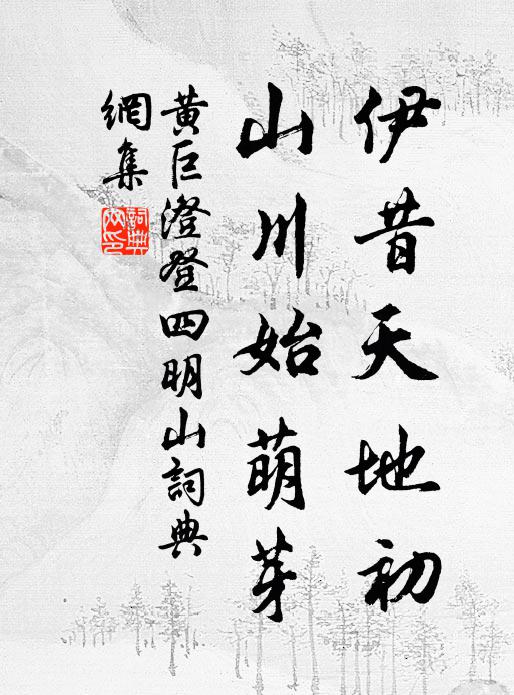 伊昔天地初
山川始萌芽
黄巨澄登四明山詞典
網集
詞典
網印